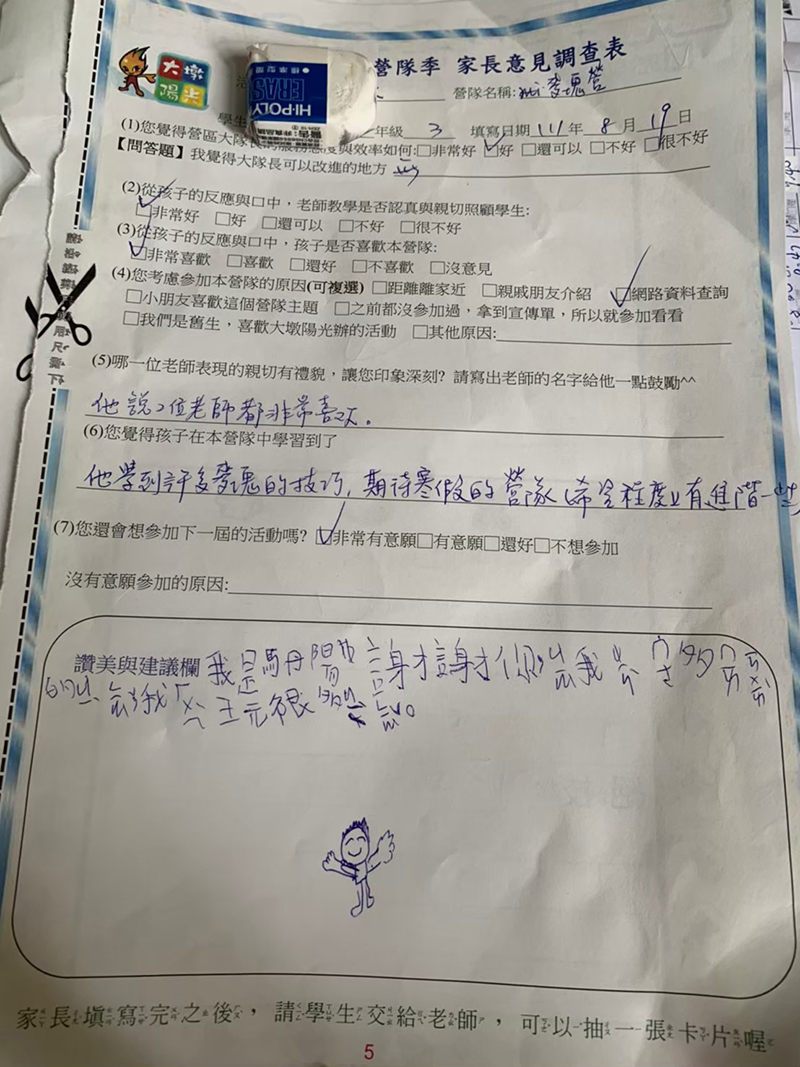 大墩
陽光
營隊季 家長意見調查表
HI-POLY
ERAS
營隊名稱:
學生
年級 3 填寫日期 111年 8月 19日
(1)您覺得營區大隊長的服務態度與效率如何:□非常好 ☑好 □還可以 □不好 □很不好
【問答題】我覺得大隊長可以改進的地方
(2)從孩子的反應與口中，老師教學是否認真與親切照顧學生:
☑非常好 □好 □還可以 □不好 □很不好
(3)從孩子的反應與口中，孩子是否喜歡本營隊:
☑非常喜歡 □喜歡 □還好 □不喜歡 □沒意見
(4)您考慮參加本營隊的原因(可複選) □距離離家近 □親戚朋友介紹 ☑網路資料查詢
□小朋友喜歡這個營隊主題 □之前都沒參加過，拿到宣傳單，所以就參加看看
□我們是舊生，喜歡大墩陽光辦的活動 □其他原因:
(5)哪一位老師表現的親切有禮貌，讓您印象深刻? 請寫出老師的名字給他一點鼓勵^^
他說2位老師都非常喜歡。
(6)您覺得孩子在本營隊中學習到了
他學到許多麥塊的技巧，期待寒假的營隊(希望程度上有進階一些
(7)您還會想參加下一屆的活動嗎? ☑非常有意願□有意願□還好□不想參加
沒有意願參加的原因:
讚美與建議欄 我是
家長填寫完之後，請學生交給老師，可以抽一張卡片喔
5